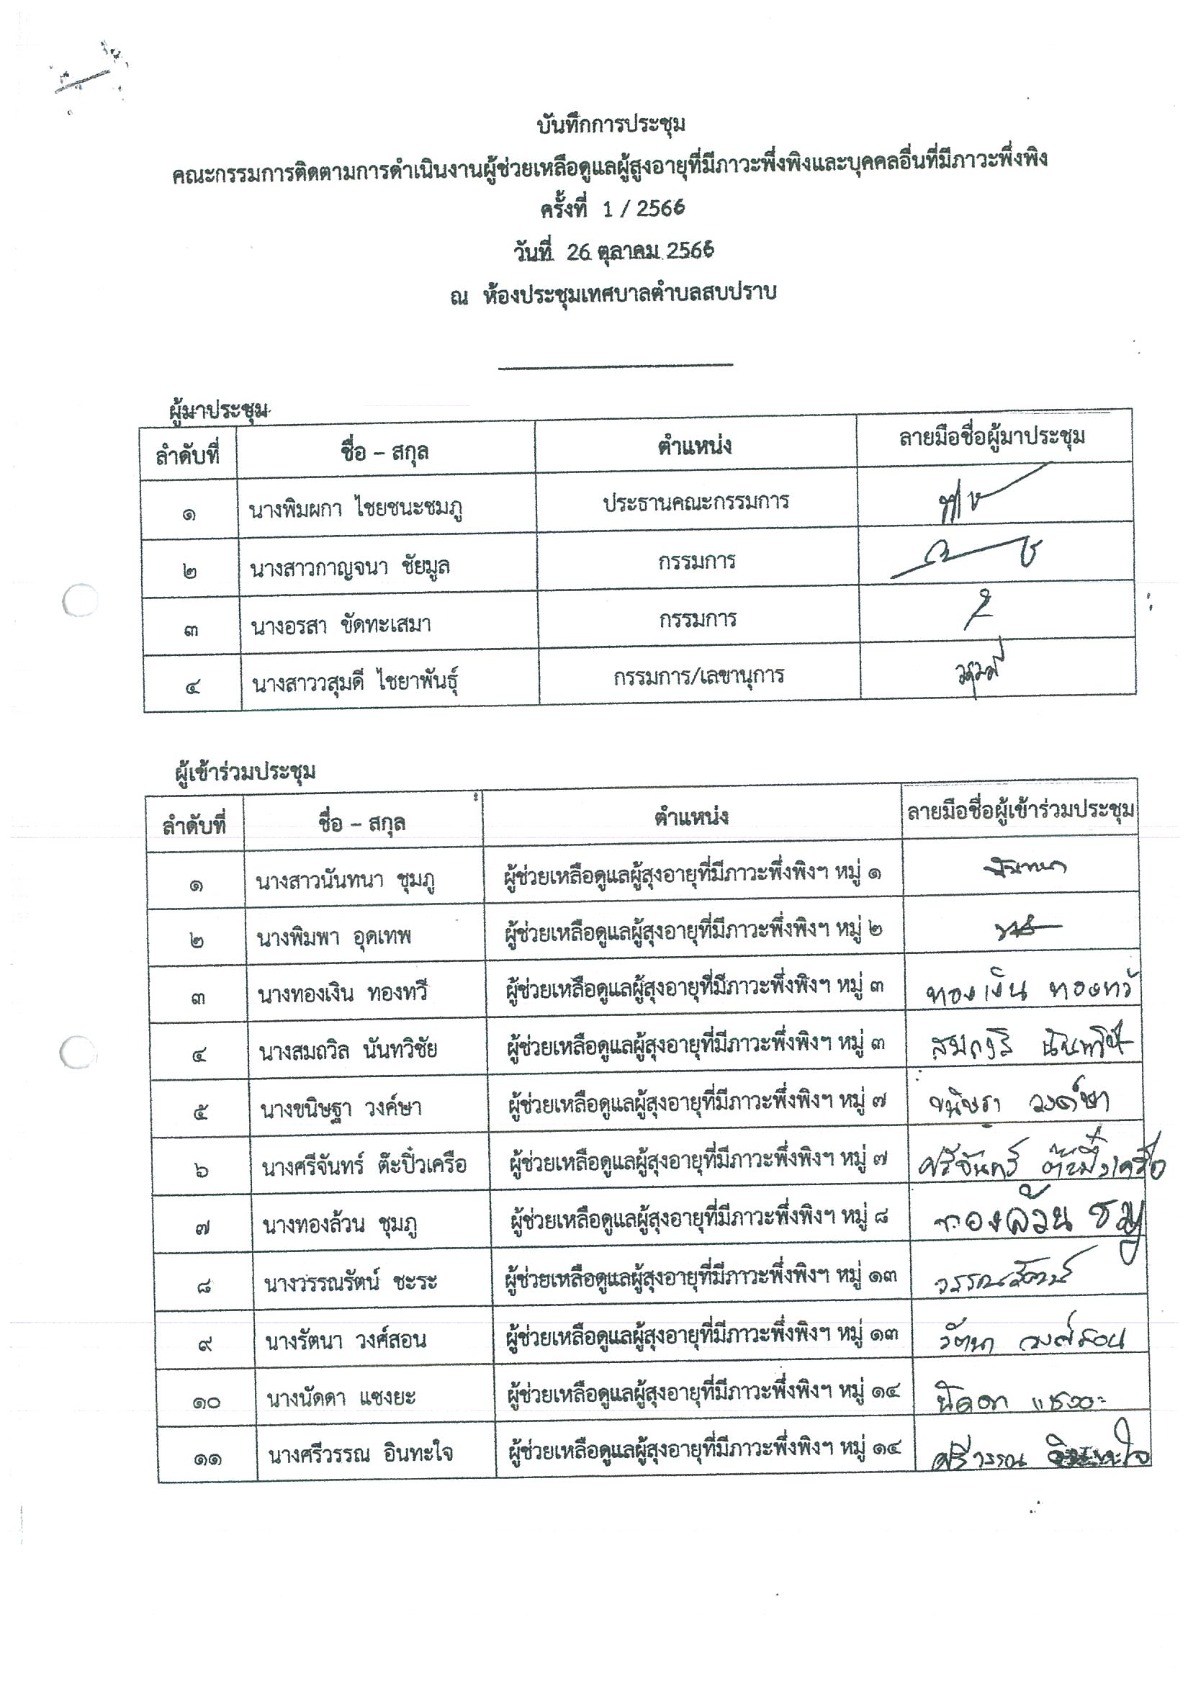 บันทึกการประชุม
คณะกรรมการติดตามการดำเนินงานผู้ช่วยเหลือดูแลผู้สูงอายุที่มีภาวะพึ่งพิงและบุคคลอื่นที่มีภาวะพึ่งพิง
ครั้งที่ 1 / 2566
วันที่ 26 ตุลาคม 2566
ณ ห้องประชุมเทศบาลตำบลสบปราบ
ผู้มาประชุม
ลำดับที่ ชื่อ – สกุล ตำแหน่ง ลายมือชื่อผู้มาประชุม
๑ นางพิมผกา ไชยชนะชมภู ประธานคณะกรรมการ
๒ นางสาวกาญจนา ชัยมูล กรรมการ
๓ นางอรสา ขัดทะเสมา กรรมการ
๔ นางสาววสุมดี ไชยาพันธุ์ กรรมการ/เลขานุการ
ผู้เข้าร่วมประชุม
ลำดับที่ ชื่อ – สกุล ตำแหน่ง ลายมือชื่อผู้เข้าร่วมประชุม
๑ นางสาวนันทนา ชุมภู ผู้ช่วยเหลือดูแลผู้สุงอายุที่มีภาวะพึ่งพิงฯ หมู่ ๑ นันทนา
๒ นางพิมพา อุดเทพ ผู้ช่วยเหลือดูแลผู้สุงอายุที่มีภาวะพึ่งพิงฯ หมู่ ๒
๓ นางทองเงิน ทองทวี ผู้ช่วยเหลือดูแลผู้สุงอายุที่มีภาวะพึ่งพิงฯ หมู่ ๓ ทองเงิน ทองทวี
๔ นางสมถวิล นันทวิชัย ผู้ช่วยเหลือดูแลผู้สุงอายุที่มีภาวะพึ่งพิงฯ หมู่ ๓
๕ นางขนิษฐา วงค์ษา ผู้ช่วยเหลือดูแลผู้สุงอายุที่มีภาวะพึ่งพิงฯ หมู่ ๗ ขนิษฐา วงค์ษา
๖ นางศรีจันทร์ ต๊ะปิ๋วเครือ ผู้ช่วยเหลือดูแลผู้สุงอายุที่มีภาวะพึ่งพิงฯ หมู่ ๗ ศรีจันทร์
๗ นางทองล้วน ชุมภู ผู้ช่วยเหลือดูแลผู้สุงอายุที่มีภาวะพึ่งพิงฯ หมู่ ๘ ทองล้วน
๘ นางวรรณรัตน์ ชะระ ผู้ช่วยเหลือดูแลผู้สุงอายุที่มีภาวะพึ่งพิงฯ หมู่ ๑๓ วรรณรัตน์
๙ นางรัตนา วงศ์สอน ผู้ช่วยเหลือดูแลผู้สุงอายุที่มีภาวะพึ่งพิงฯ หมู่ ๑๓ รัตนา วงศ์สอน
๑๐ นางนัดดา แซงยะ ผู้ช่วยเหลือดูแลผู้สุงอายุที่มีภาวะพึ่งพิงฯ หมู่ ๑๔ นัดดา
๑๑ นางศรีวรรณ อินทะใจ ผู้ช่วยเหลือดูแลผู้สุงอายุที่มีภาวะพึ่งพิงฯ หมู่ ๑๔ ศรีวรรณ